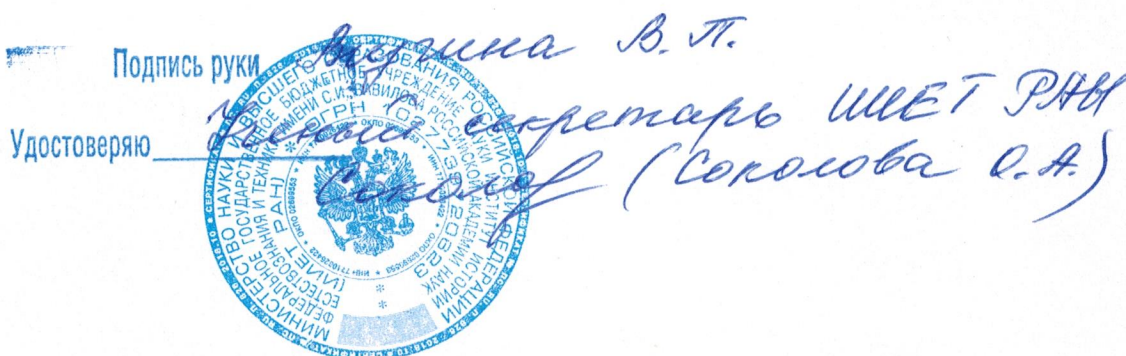 Подпись руки Визгина В.П.
Ученый секретарь ИИЕТ РАН
Удостоверяю
Соколов (Соколова О.А.)
МИНИСТЕРСТВО НАУКИ И ВЫСШЕГО ОБРАЗОВАНИЯ РОССИЙСКОЙ ФЕДЕРАЦИИ
ФЕДЕРАЛЬНОЕ ГОСУДАРСТВЕННОЕ БЮДЖЕТНОЕ УЧРЕЖДЕНИЕ НАУКИ ИНСТИТУТ ИСТОРИИ
ЕСТЕСТВОЗНАНИЯ И ТЕХНИКИ ИМЕНИ С.И. ВАВИЛОВА РОССИЙСКОЙ АКАДЕМИИ НАУК
(ИИЕТ РАН) * ОГРН